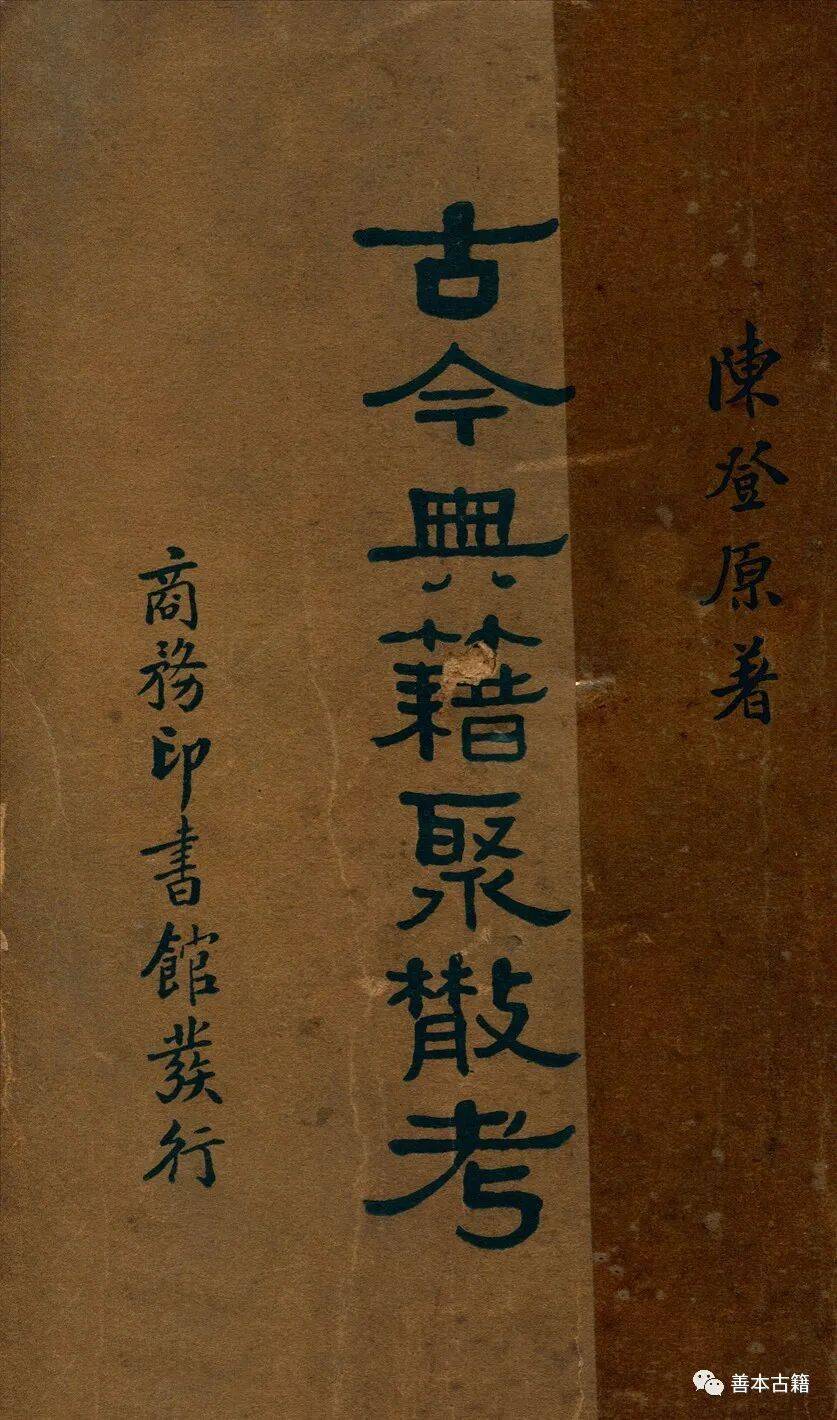 陳登原著
古今典籍聚散考
商務印書館發行
善本古籍